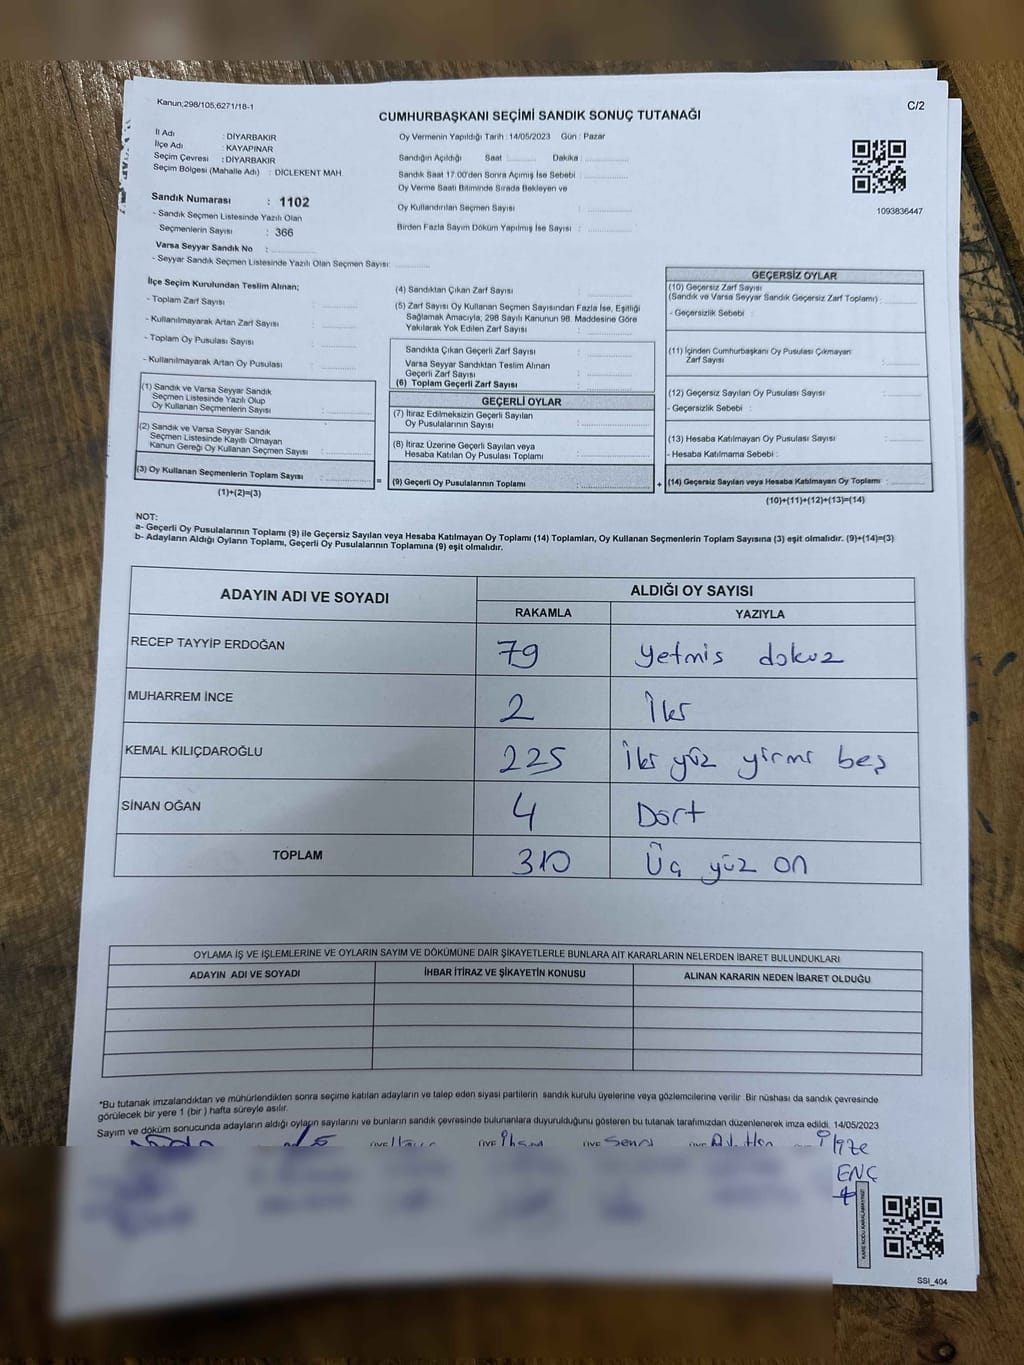 Kanun;298/105,6271/18-1
C/2
CUMHURBAŞKANI SEÇİMİ SANDIK SONUÇ TUTANAĞI
İl Adı : DİYARBAKIR
İlçe Adı : KAYAPINAR
Seçim Çevresi : DİYARBAKIR
Seçim Bölgesi (Mahalle Adı) : DİCLEKENT MAH.
Sandık Numarası : 1102
- Sandık Seçmen Listesinde Yazılı Olan
Seçmenlerin Sayısı : 366
Varsa Seyyar Sandık No :
- Seyyar Sandık Seçmen Listesinde Yazılı Olan Seçmen Sayısı:
Oy Vermenin Yapıldığı Tarih : 14/05/2023 Gün : Pazar
Sandığın Açıldığı Saat : Dakika :
Sandık Saat 17:00'den Sonra Açımış İse Sebebi :
Oy Verme Saati Bitiminde Sırada Bekleyen ve
Oy Kullandırılan Seçmen Sayısı :
Birden Fazla Sayım Döküm Yapılmış İse Sayısı :
1093836447
İlçe Seçim Kurulundan Teslim Alınan;
- Toplam Zarf Sayısı :
- Kullanılmayarak Artan Zarf Sayısı :
- Toplam Oy Pusulası Sayısı :
- Kullanılmayarak Artan Oy Pusulası :
(1) Sandık ve Varsa Seyyar Sandık
Seçmen Listesinde Yazılı Olup
Oy Kullanan Seçmenlerin Sayısı :
(2) Sandık ve Varsa Seyyar Sandık
Seçmen Listesinde Kayıtlı Olmayan
Kanun Gereği Oy Kullanan Seçmen Sayısı :
(3) Oy Kullanan Seçmenlerin Toplam Sayısı :
(1)+(2)=(3)
(4) Sandıktan Çıkan Zarf Sayısı :
(5) Zarf Sayısı Oy Kullanan Seçmen Sayısından Fazla İse, Eşitliği
Sağlamak Amacıyla; 298 Sayılı Kanunun 98. Maddesine Göre
Yakılarak Yok Edilen Zarf Sayısı :
Sandıkta Çıkan Geçerli Zarf Sayısı :
Varsa Seyyar Sandıktan Teslim Alınan
Geçerli Zarf Sayısı :
(6) Toplam Geçerli Zarf Sayısı :
GEÇERLİ OYLAR
(7) İtiraz Edilmeksizin Geçerli Sayılan
Oy Pusulalarının Sayısı :
(8) İtiraz Üzerine Geçerli Sayılan veya
Hesaba Katılan Oy Pusulası Toplamı :
= (9) Geçerli Oy Pusulalarının Toplamı :
GEÇERSİZ OYLAR
(10) Geçersiz Zarf Sayısı
(Sandık ve Varsa Seyyar Sandık Geçersiz Zarf Toplamı) :
- Geçersizlik Sebebi :
(11) İçinden Cumhurbaşkanı Oy Pusulası Çıkmayan
Zarf Sayısı :
(12) Geçersiz Sayılan Oy Pusulası Sayısı :
- Geçersizlik Sebebi :
(13) Hesaba Katılmayan Oy Pusulası Sayısı :
- Hesaba Katılmama Sebebi :
+ (14) Geçersiz Sayılan veya Hesaba Katılmayan Oy Toplamı :
(10)+(11)+(12)+(13)=(14)
NOT:
a- Geçerli Oy Pusulalarının Toplamı (9) ile Geçersiz Sayılan veya Hesaba Katılmayan Oy Toplamı (14) Toplamları, Oy Kullanan Seçmenlerin Toplam Sayısına (3) eşit olmalıdır. (9)+(14)=(3)
b- Adayların Aldığı Oyların Toplamı, Geçerli Oy Pusulalarının Toplamına (9) eşit olmalıdır.
ADAYIN ADI VE SOYADI ALDIĞI OY SAYISI
RAKAMLA YAZIYLA
RECEP TAYYİP ERDOĞAN 79 yetmis dokuz
MUHARREM İNCE 2 İki
KEMAL KILIÇDAROĞLU 225 İki yüz yirmi beş
SİNAN OĞAN 4 Dört
TOPLAM 310 Üç yüz on
OYLAMA İŞ VE İŞLEMLERİNE VE OYLARIN SAYIM VE DÖKÜMÜNE DAİR ŞİKAYETLERLE BUNLARA AİT KARARLARIN NELERDEN İBARET BULUNDUKLARI
ADAYIN ADI VE SOYADI İHBAR İTİRAZ VE ŞİKAYETİN KONUSU ALINAN KARARIN NEDEN İBARET OLDUĞU
*Bu tutanak imzalandıktan ve mühürlendikten sonra seçime katılan adayların ve talep eden siyasi partilerin sandık kurulu üyelerine veya gözlemcilerine verilir .Bir nüshası da sandık çevresinde
görülecek bir yere 1 (bir ) hafta süreyle asılır.
Sayım ve döküm sonucunda adayların aldığı oyların sayılarını ve bunların sandık çevresinde bulunanlara duyurulduğunu gösteren bu tutanak tarafımızdan düzenlenerek imza edildi. 14/05/2023
ENÇ
KARE KODU KARALAMAYINIZ
SSI_404